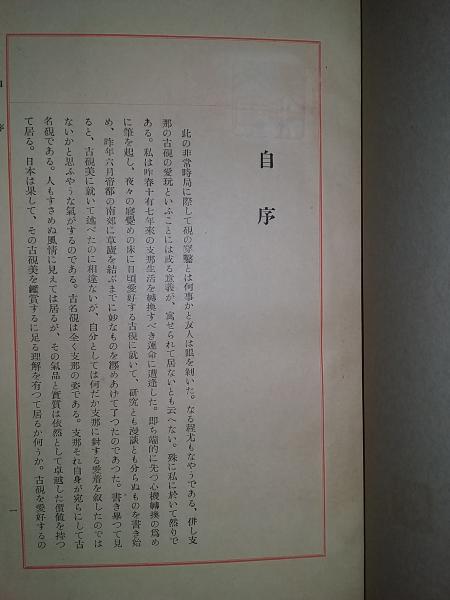 自序
此の非常時局に際して硯の穿鑿とは何事かと友人は眼を剝いた。なる程尤もなやうである、併し支
那の古硯の愛玩といふことには或る意義が、寓せられて居ないとも云へない。殊に私に於いて然りで
ある。私は昨春十有七年來の支那生活を轉換すべき運命に遭逢した。卽ち端的に先づ心機轉換の爲め
に筆を起し、夜々の寢覺めの床に日頃愛好する古硯に就いて、硏究とも漫談とも分らぬものを書き始
め、昨年六月帝都の南郊に草廬を結ぶまでに妙なものを纏めあげて了つたのであつた。書き擧つて見
ると、古硯美に就いて述べたのに相違ないが、自分としては何だか支那に對する愛着を敍したのでは
ないかと思ふやうな氣がするのである。古名硯は全く支那の姿である。支那それ自身が宛らにして古
名硯である。人もすさめぬ風情に見えては居るが、その氣品と實質は依然として卓越した價値を持つ
て居る。日本は果して、その古硯美を鑑賞するに足る理解を有つて居るか何うか。古硯を愛好するの
自序
一